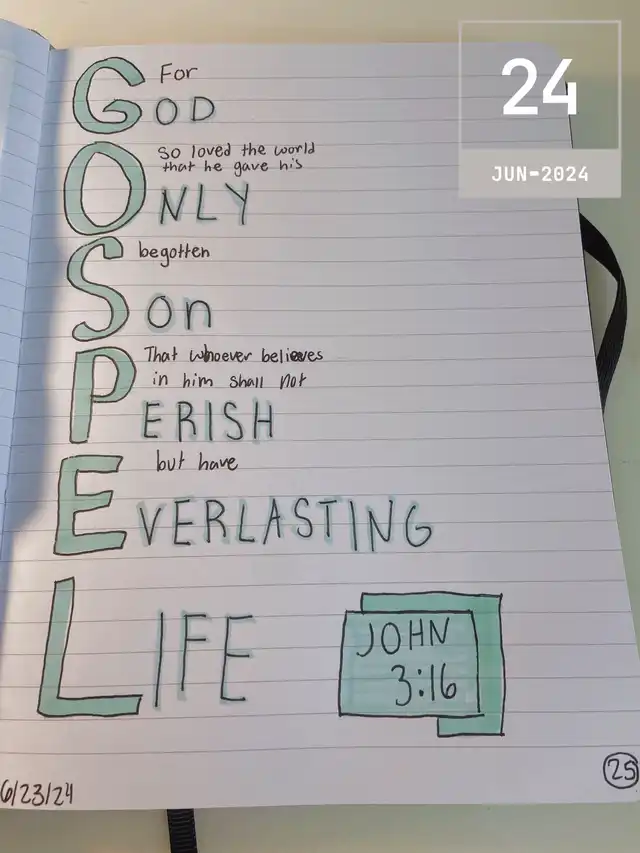 For
GOD
so loved the world
that he gave his
ONLY
begotten
Son
That whoever believes
in him shall not
PERISH
but have
EVERLASTING
LIFE
JOHN
3:16
6/23/24
25
24
JUN-2024